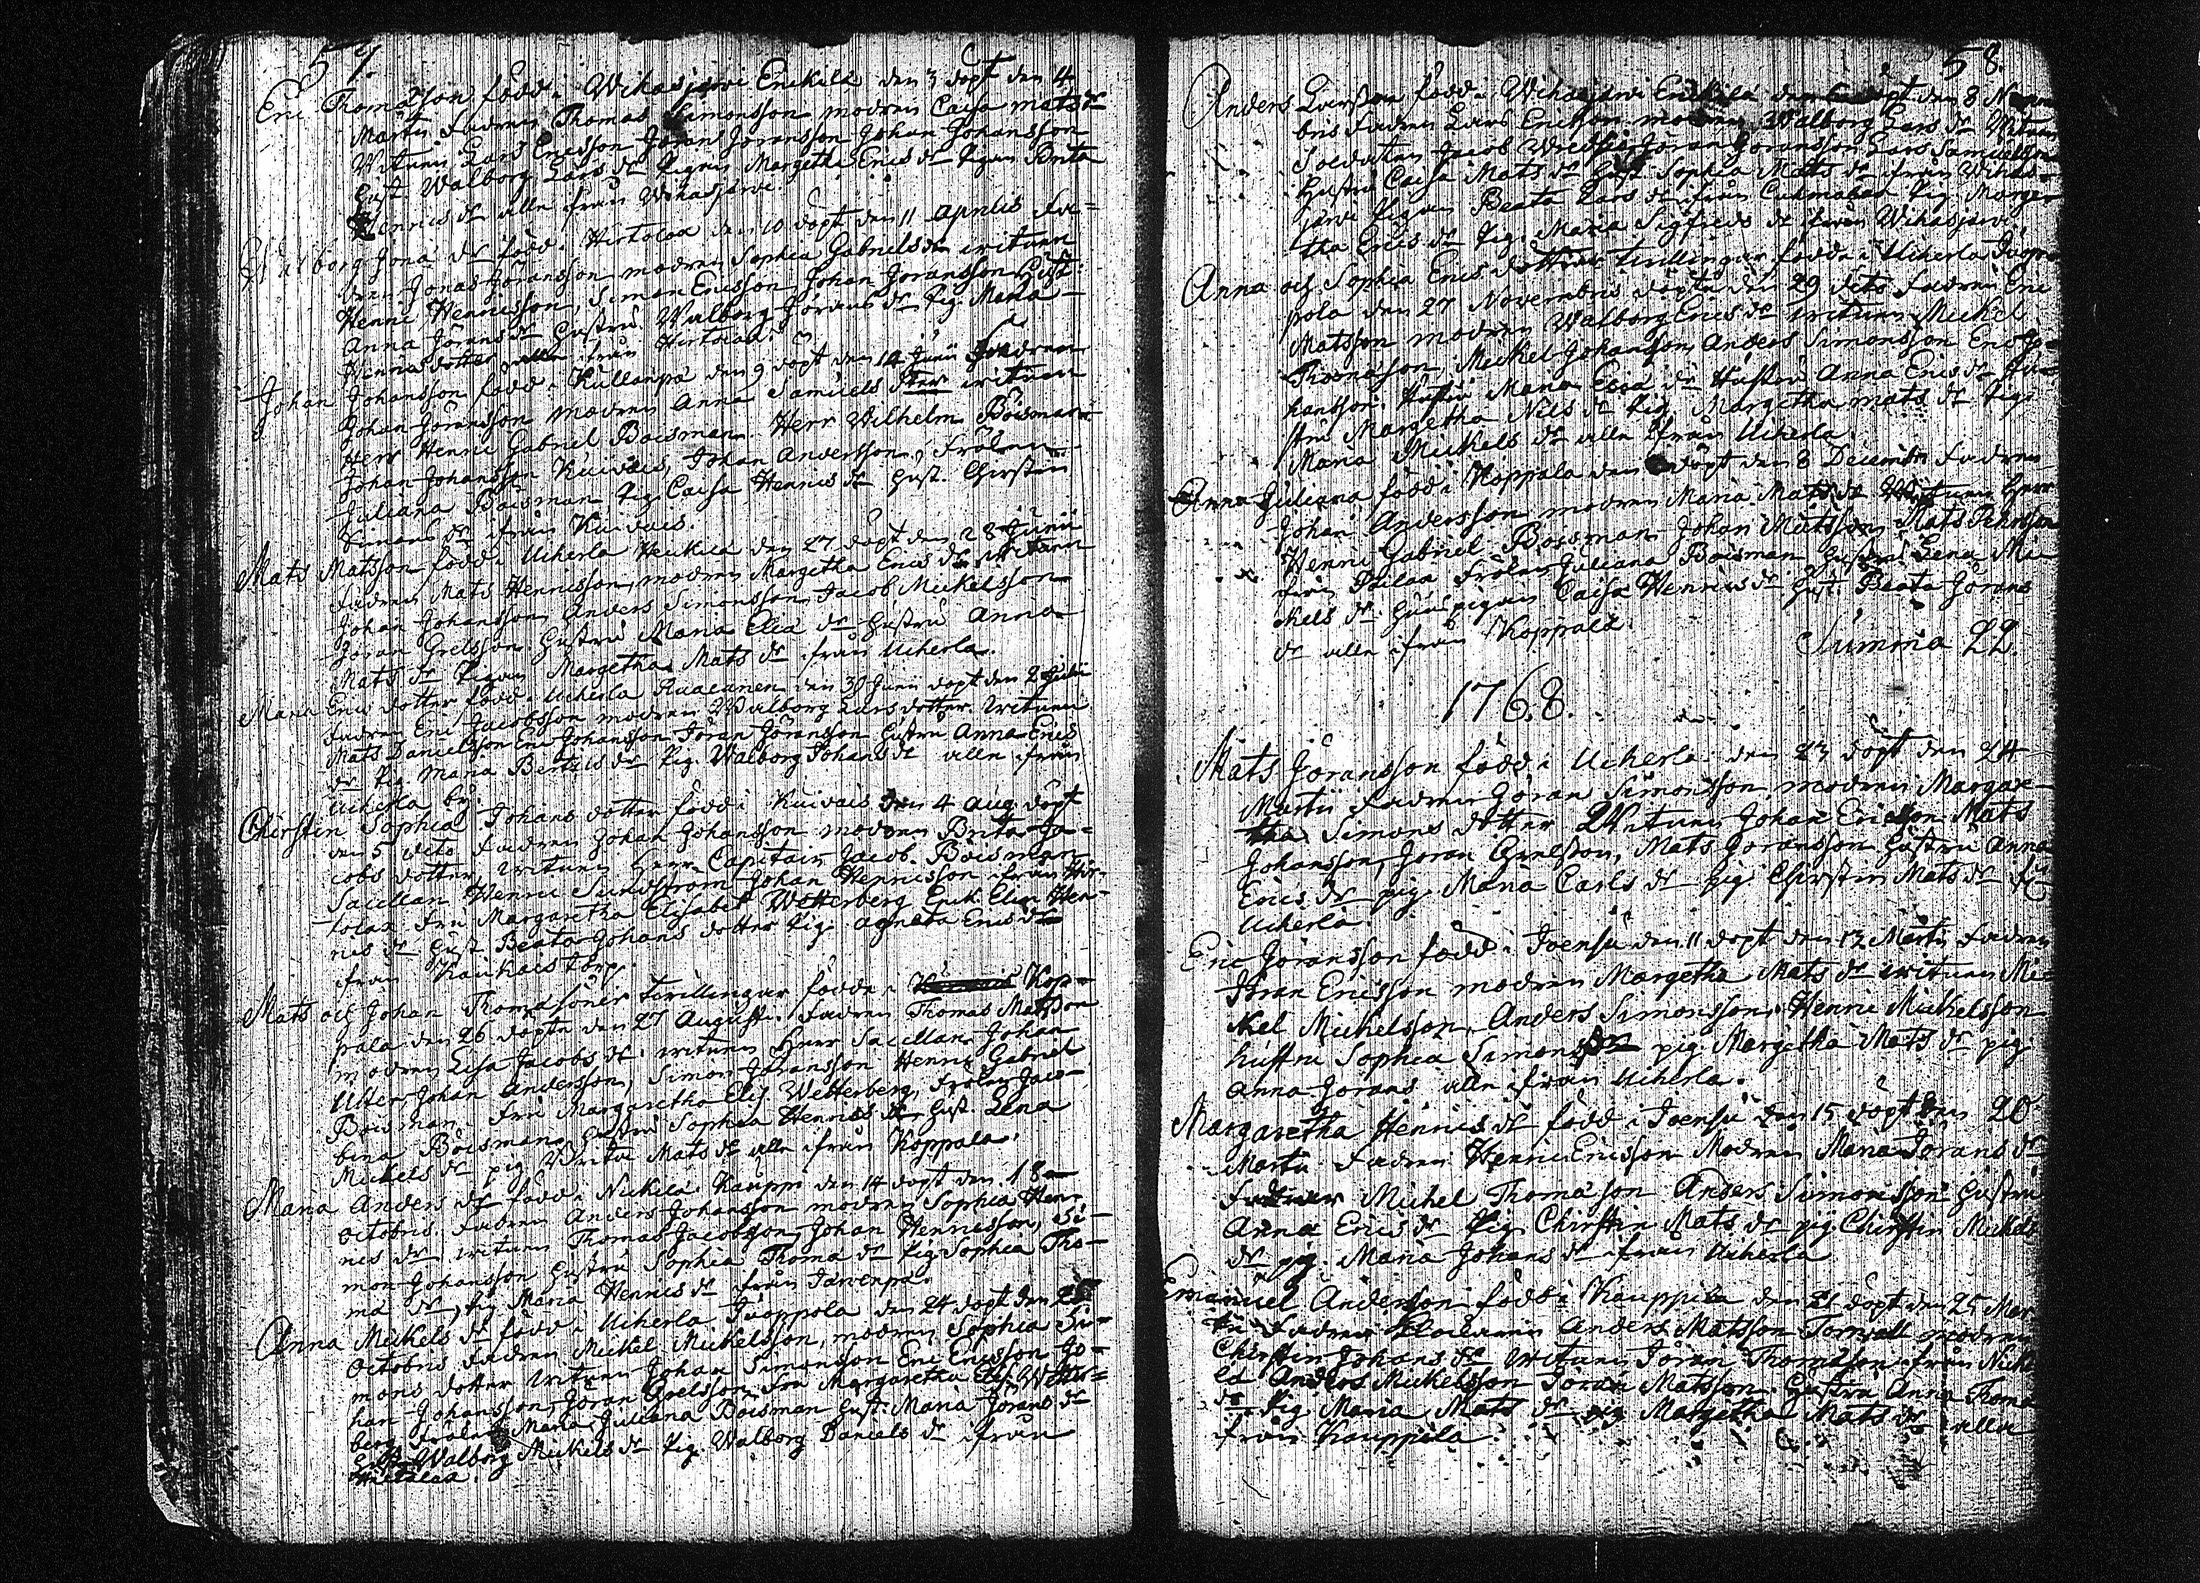 57.
Eric Thomasson född i Wihasjärvi Erickilä den 3 döpt den 4
Martii Fadren Thomas Simonsson modren Caisa Mats dr
Witnen Lars Ericsson Jöran Jöransson Johan Johansson
hust. Walborg Lars dr Pigan Margetha Erics dr Pigan Brita
Hennis dr alla ifrån Wihasjärvi.
Walborg Jona dr född i Hirtolaa den 10 döpt den 11 Aprilis Fa-
dren Jonas Jöransson modren Sophia Gabriels dr witnen
Henric Hennisson, Simon Ericsson, Johan Jöransson Hust.
Anna Jörans dr hustru Walborg Jörans dr Pig. Maria
Hennis dotter alla ifrån Hirtolaa.
Johan Johansson född i Kullanpä den 9 döpt den 12 Junii Fadren
Johan Jöransson modren Anna Samuels dter witnen
Herr Henric Gabriel Boisman. Herr Wilhelm Boisman
Johan Johansson Kuivais, Johan Andersson, Frölen
Juliana Boisman Pig. Caisa Hennis dr hust. Chirstin
Simons dr ifrån Kuivais.
Mats Matsson född i Ucherla Heickilä den 27 döpt den 28 Junii
Fadren Mats Hennisson, modren Margetha Erics dr witnen
Johan Johansson Anders Simonsson Jacob Mickelsson
Jöran Grelsson hustru Maria Eliä dr hustru Anna
Mats dr Pigan Margetha Mats dr ifrån Ucherla.
Maria Erics dotter född i Ucherla den 30 Junii döpt den 2 Julii
Fadren Eric Jacobsson modren Walborg Larsdotter. Witnen
Mats Danielsson Eric Johansson Jöran Jöransson hustru Anna Erics
dr Pig Maria Bertils dr Pig. Walborg Johans dr alla ifrån
Ucherla by.
Chirstin Sophia Johans dotter född i Kuivais den 4 Aug. döpt
den 5 dito Fadren Johan Johansson modren Brita Ja-
cobs dotter, witnen herr Capitain Jacob Boisman
Sacellan Henric Sundström Johan Hennisson ifrån Hir-
tolaa Fru Margaretha Elisabet Wetterberg Enk. Elin Hen-
nis dr hust Beata Johans dotter Pig. Agneta Erics dr
ifrån Kaukais torp.
Mats och Johan Thomasöner twillingar födde i Kop-
pala den 26 döpte den 27 Augusti. Fadren Thomas Matsson
modren Lisa Jacobs dr. witnen herr Sacellan Johan
Uter Johan Andersson, Simon Jöransson Henric Gabriel
Boisman. Fru Margaretha Elis. Wetterberg, Frölen Jaco-
bina Boisman, hustru Sophia Hennis dr hust. Lena
Mickels dr pig Brita Mats dr alla ifrån Koppala.
Maria Anders dr född i Nickilä Kauppi den 14 döpt den 18
Octobris. Fadren Anders Johansson modren Sophia Hen-
nis dr witnen Thomas Jacobsson, Johan Hennisson, Si-
mon Johansson hustru Sophia Thoma dr Pig. Sophia Tho-
ma dr, Pig Maria Hennis dr ifrån Järvenpä.
Anna Mickels dr född i Ucherla Juoppola den 24 döpt den
Octobris Fadren Mickel Mickelsson, modren Sophia Si-
mons dotter Witnen Johan Simonsson Eric Ericsson Jo-
han Johansson, Jöran Grelsson, Fru Margaretha Elis Wetter-
berg Frölen Maria Juliana Boisman hust. Maria Jörans dr
Walborg Mickels dr Pig. Walborg Daniels dr ifrån
58.
Anders Larsson född i Wihasjärvi Erickilä den döpt den 8 Novem
bris Fadren Lars Ericsson modren Walborg Lars dr Witnen
Soldaten Jacob Jöran Jöransson Lars Samuelsson
hustru Caisa Mats dr hust Sophia Mats dr ifrån Wihas-
järvi Pigan Beata Lars dr ifrån Pig. Marge-
tha Erics dr Pig. Maria Sigfreds dr ifrån Wihasjärvi.
Anna och Sophia Erics döttrar twillingar födde i Ucherla Juop-
pola den 27 Novembris döpte den 29 dito Fadren Eric
Matsson modren Walborg Erics dr witnen Mickel
Thomasson, Mickel Johansson Anders Simonsson Eric Jo-
hansson. Hustru Maria Eliä dr Hustru Anna Erics dr Hu-
stru Margetha Nils dr Pig. Margetha Mats dr Pig.
Maria Mickels dr alla ifrån Ucherla.
Anna Juliana född i Koppala den döpt den 8 Decembr. Fadren
Johan Andersson modren Maria Mats dr Witnen Herr
Henric Gabriel Boisman Johan Mattsson Mats Pehrsson
ifrån Frölen Juliana Boisman hustru Lena Mi-
ckels dr Caisa Hennis dr hust. Beata Jörans
dr alla ifrån Koppala.
Summa 22
1768.
Mats Jöransson född i Ucherla den 23 döpt den 24
Martii Fadren Jöran Simonsson, modren Margare-
tha Simons dotter Witnen Johan Ericsson Mats
Johansson, Jöran Grelsson, Mats Jöransson hustru Anna
Erics dr pig Maria Carls dr pig Chirstin Mats dr fr
Ucherla.
Eric Jöransson född i Joensu den 11 döpt den 13 Martii Fadren
Jöran Ericsson modren Margetha Mats dr witnen Mi-
ckel Mickelsson, Anders Simonsson, Henric Mickelsson
hustru Sophia Simons dr pig. Margetha Mats dr pig.
Anna Jörans alla ifrån Ucherla.
Margaretha Hennis dr född i Joensu den 15 döpt den 20
Martii Fadren Henric Ericsson Modren Maria Jörans dr
Michel Thomasson Anders Simonsson hustru
Anna Erics dr Pig. Chirstin Mats dr pig Chirstin Mickels
dr pig. Maria Johans dr ifrån Ucherla
Emanuel Andersson född i Kauppila den 21 döpt den 25 Mar
tii Fadren Klockaren Anders Matsson Tornwall modren
Chirstin Johans dr Witnen Jöran Thomasson ifrån Nicki
lä Anders Mickelsson Jöran Matsson. hustru Anna Thoma
dr Pig. Maria Mats dr pig Margetha Mats dr alla
ifrån Kauppila.